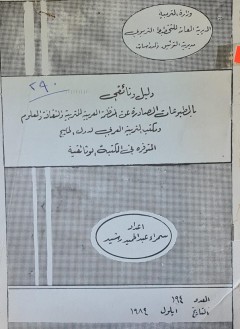 وزارة التربية
المديرية العامة للتخطيط التربوي
مديرية التوثيق والدراسات
٢٩٠
دليل وثائقي
بالمطبوعات الصادرة عن المنظمة العربية للتربية والثقافة والعلوم
ومكتب التربية العربي لدول الخليج
المتوفرة في المكتبة الوثائقية
اعداد
سمراء عبد الحميد رشيد
العدد ١٩٤
التاريخ ايلول ١٩٨٩